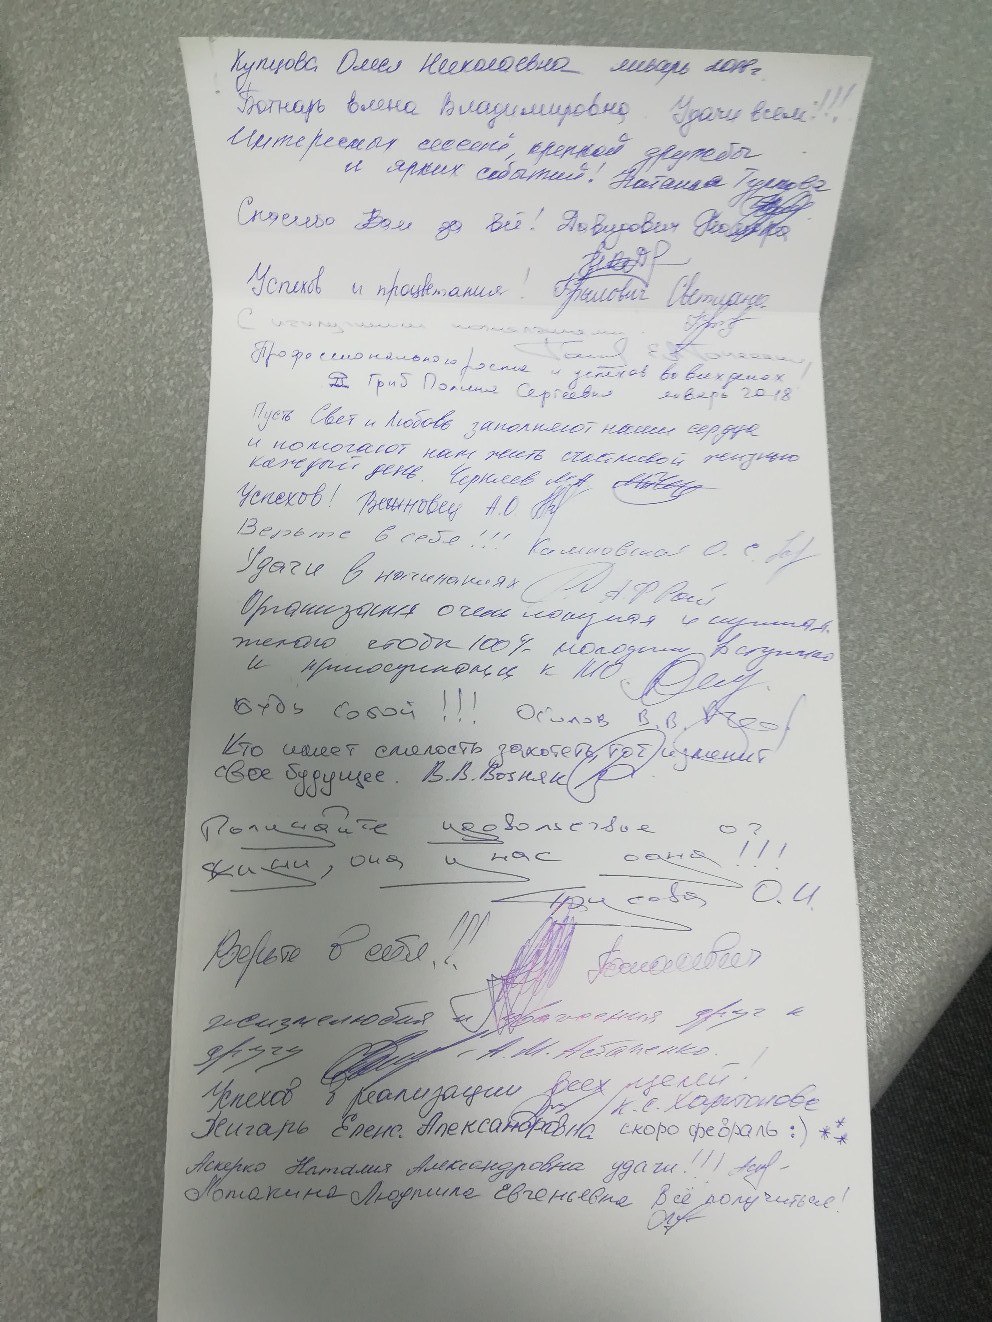 Купцова Олеся Николаевна январь 2018г.
Ботнарь Елена Владимировна Удачи всем!!!
Интересных сессий, крепкой дружбы
и ярких событий! Наташа Туркова
Спасибо Вам за всё! Давидович
Успехов и процветания! Светлана
С
Профессионального роста и успехов во всех делах!
Гриб Полина Сергеевна январь 2018
Пусть Свет и Любовь заполняют наши сердца
и помогают нам жить счастливой жизнью
каждый день.
Успехов! А.О
Верьте в себя!!! О. С.
Удачи в начинаниях
Организация очень нужная
желаю чтобы 100% молодёжи вступило
и к МО
Будь собой!!! Осипов В.В.
Кто имеет смелость захотеть, тот изменит
свое будущее. В.В.Возняк
Получайте удовольствие от
жизни, она у нас одна!!!
О.И.
Верьте в себя!!!
жизнелюбия и друг к
другу А.М. Астапенко.
Успехов в реализации всех целей!
К.С. Харитонова
Жигарь Елена Александровна скоро февраль :)
Аскерко Наталия Александровна удачи!!!
Людмила Евгеньевна Всё получиться!